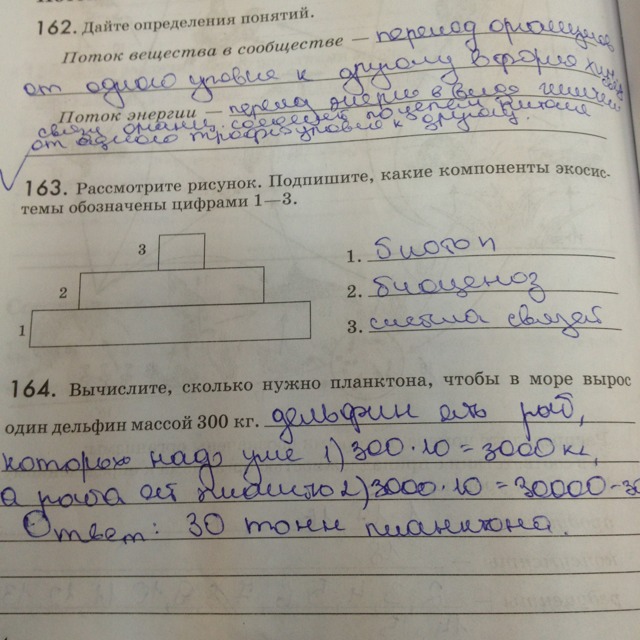 162. Дайте определения понятий.
Поток вещества в сообществе — переход
от одного уровня к другому в форме
Поток энергии — переход энергии в виде
связи органи. соединен. по цепям питания
от одного трофич. уровня к другому.
163. Рассмотрите рисунок. Подпишите, какие компоненты экосис-
темы обозначены цифрами 1—3.
3
2
1
1. биотоп
2. биоценоз
3. система связей
164. Вычислите, сколько нужно планктона, чтобы в море вырос
один дельфин массой 300 кг. дельфин ест рыб,
которых надо уже 1) 300 · 10 = 3000 кг,
а рыба ест 2) 3000 · 10 = 30000 - 30
Ответ: 30 тонн планктона.